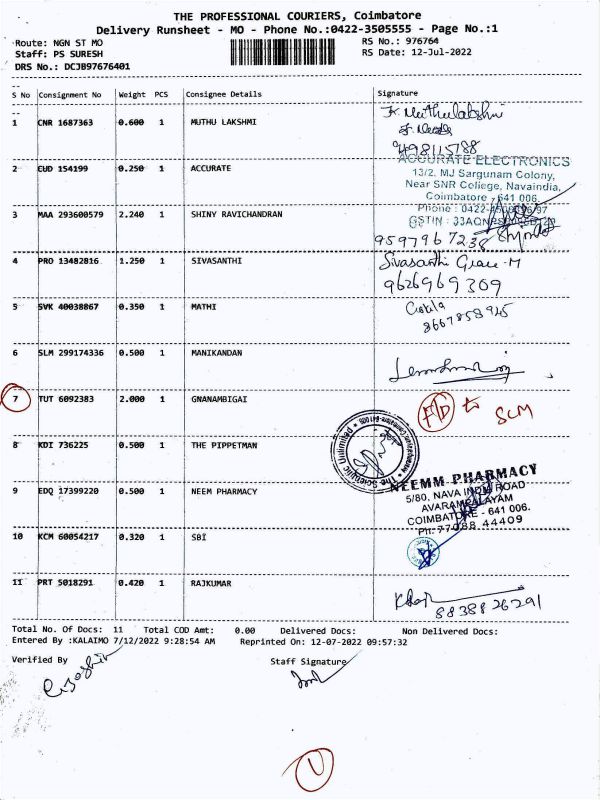 THE PROFESSIONAL COURIERS, Coimbatore
Delivery Runsheet - MO - Phone No.:0422-3505555 - Page No.:1
Route: NGN ST MO
RS No.: 976764
Staff: PS SURESH
RS Date: 12-Jul-2022
DRS No.: DCJB97676401
S No Consignment No Weight PCS Consignee Details Signature
1 CNR 1687363 0.600 1 MUTHU LAKSHMI
K. Muthulakshmi
9498115788
2 EUD 154199 0.250 1 ACCURATE
ACCURATE ELECTRONICS
13/2, MJ Sargunam Colony,
Near SNR College, Navaindia,
Coimbatore - 641 006.
Phone : 0422-
GSTIN : 33A
3 MAA 293600579 2.240 1 SHINY RAVICHANDRAN
9597967238
4 PRO 13482816 1.250 1 SIVASANTHI
Sivasanthi Grace-M
9626969309
5 SVK 40038867 0.350 1 MATHI
8667858945
6 SLM 299174336 0.500 1 MANIKANDAN
7 TUT 6092383 2.000 1 GNANAMBIGAI
to SCM
8 KDI 736225 0.500 1 THE PIPPETMAN
The Scientific Unlimited
9 EDQ 17399220 0.500 1 NEEM PHARMACY
NEEMM PHARMACY
5/80, NAVA INDIA ROAD
AVARAMPALAYAM
COIMBATORE - 641 006.
Ph: 77088 44409
10 KCM 60054217 0.320 1 SBI
11 PRT 5018291 0.420 1 RAJKUMAR
8838826291
Total No. Of Docs: 11 Total COD Amt: 0.00 Delivered Docs: Non Delivered Docs:
Entered By :KALAIMO 7/12/2022 9:28:54 AM Reprinted On: 12-07-2022 09:57:32
Verified By Staff Signature